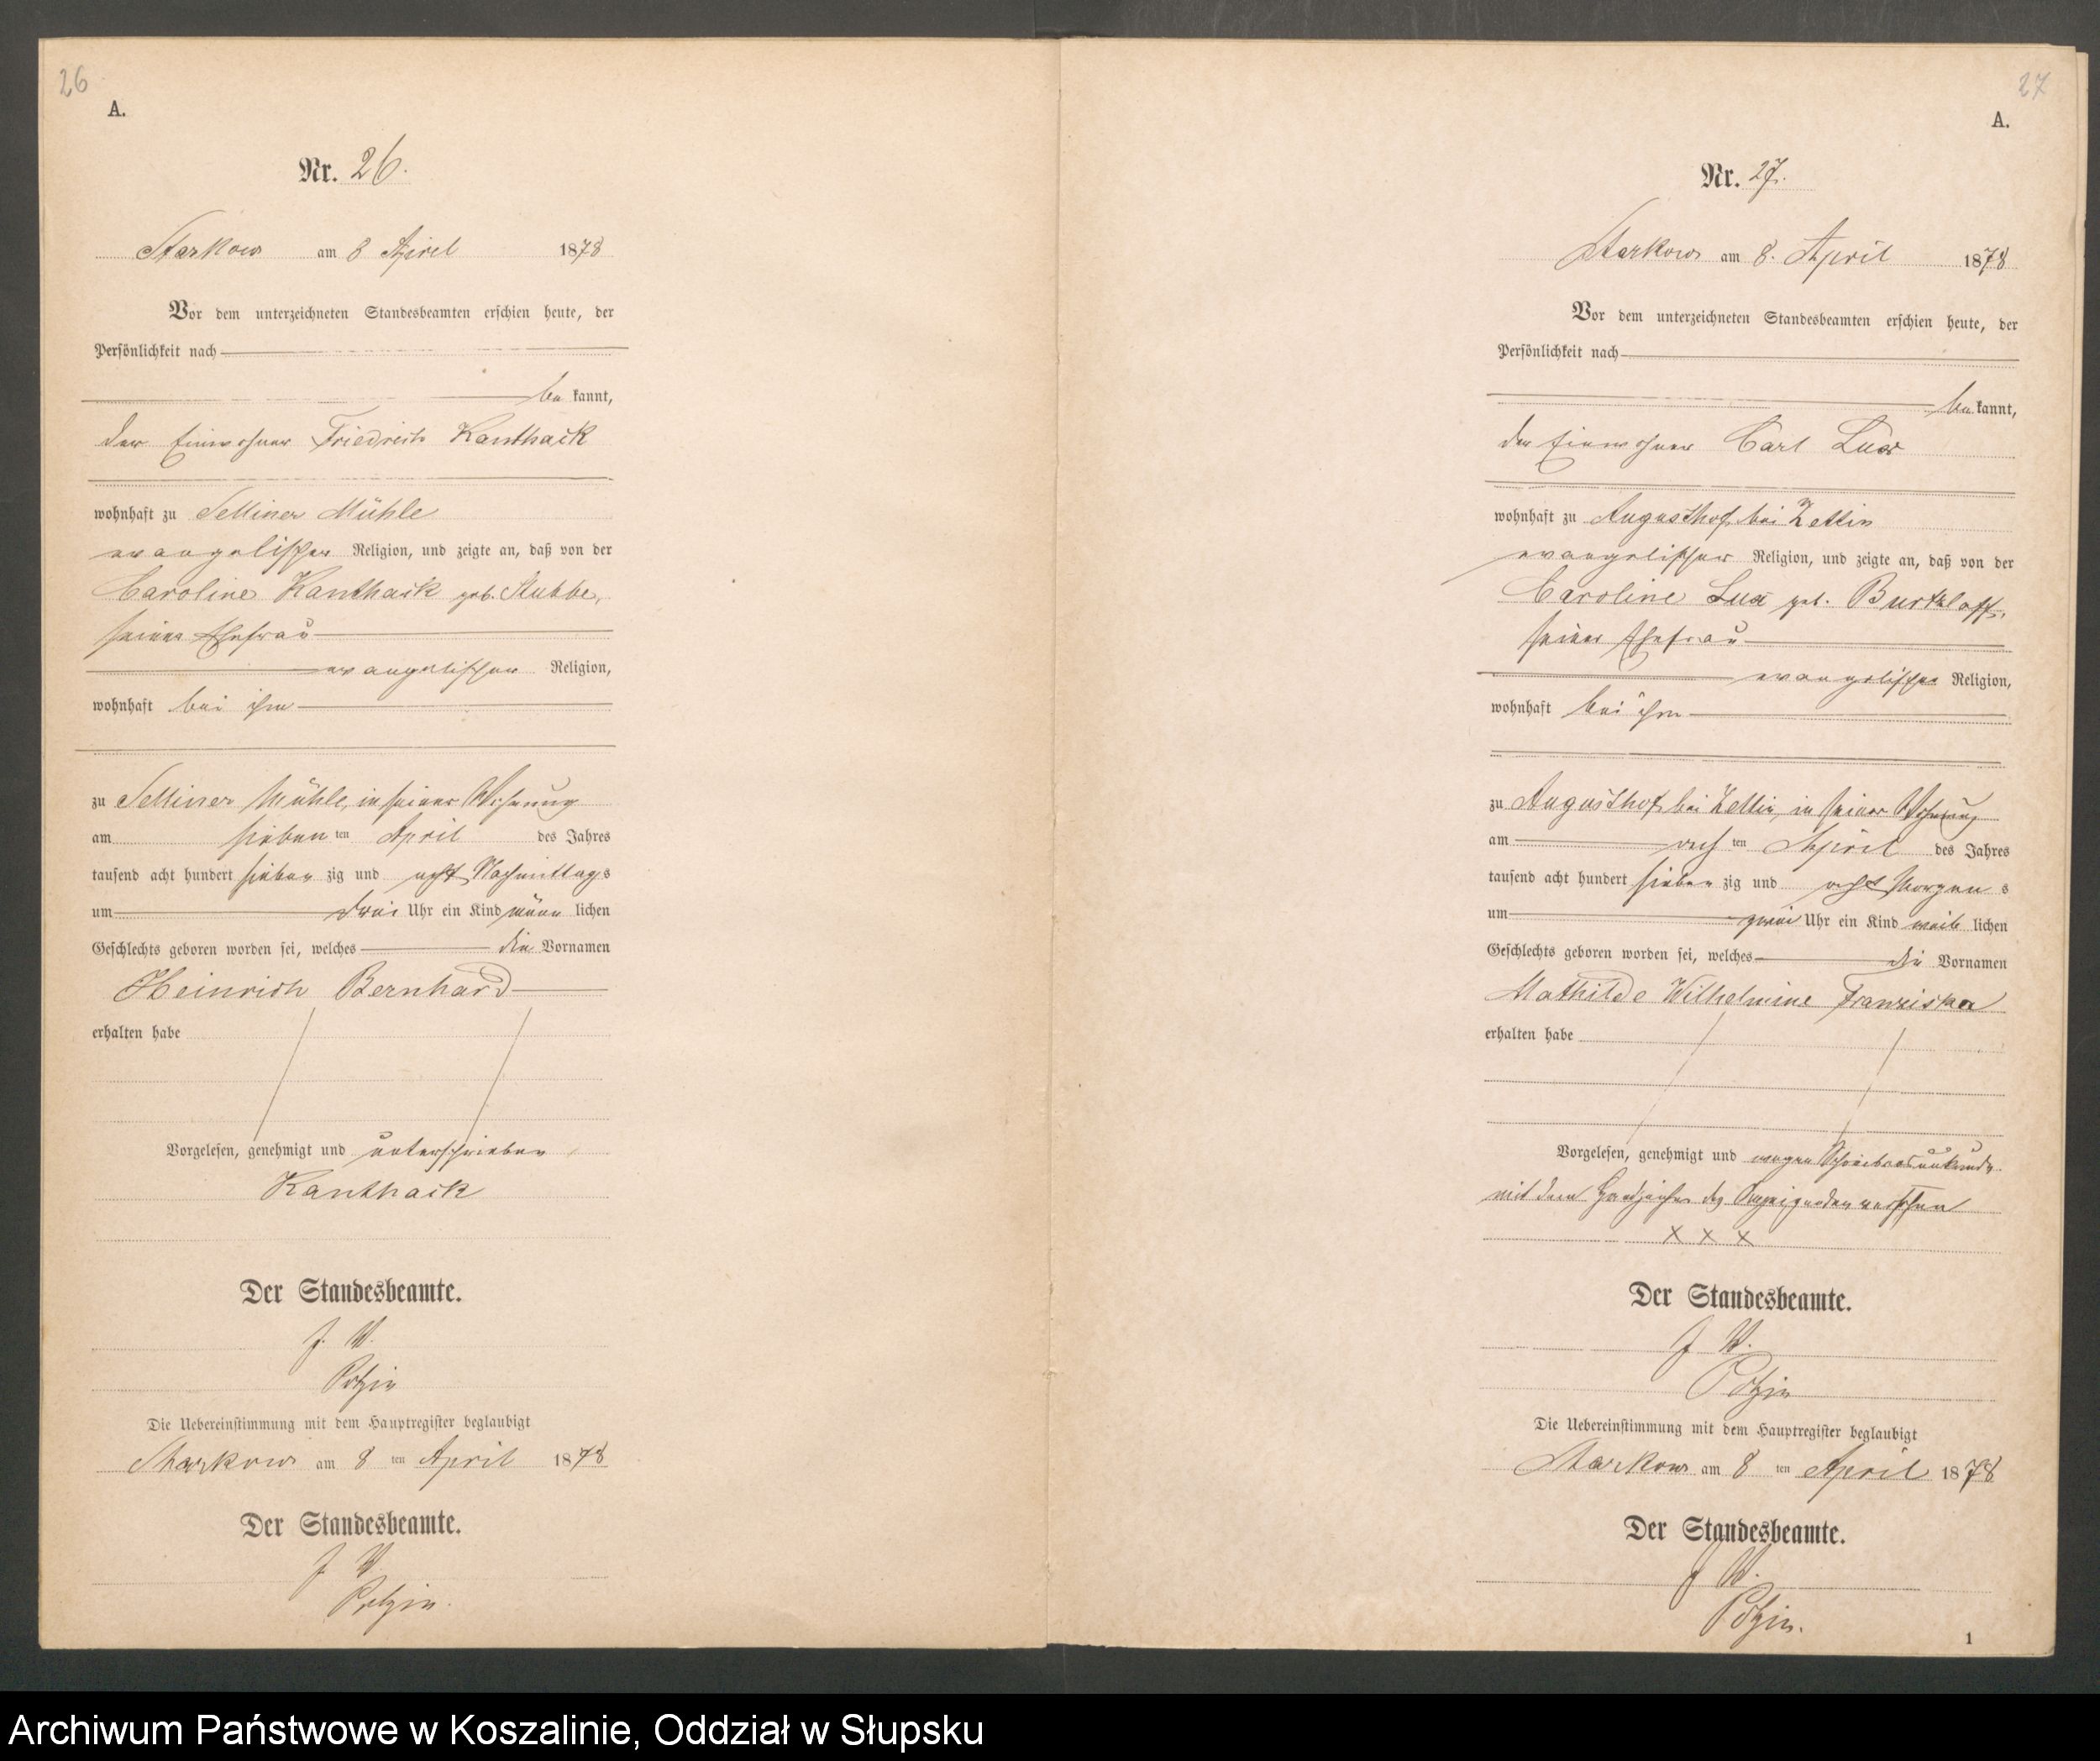 26
A.
Nr. 26.
Starkow am 8 April 1878
Vor dem unterzeichneten Standesbeamten erschien heute, der
Persönlichkeit nach
be kannt,
der Einwohner Friedrich Kanthack
wohnhaft zu Selliner Mühle
evangelischer Religion, und zeigte an, daß von der
Caroline Kanthack geb. Stubbe,
seiner Ehefrau
evangelischer Religion,
wohnhaft bei ihm
zu Selliner Mühle, in seiner Wohnung
am sieben ten April des Jahres
tausend acht hundert sieben zig und acht Nachmittags
um drei Uhr ein Kind männ lichen
Geschlechts geboren worden sei, welches die Vornamen
Heinrich Bernhard
erhalten habe
Vorgelesen, genehmigt und unterschrieben
Kanthack
Der Standesbeamte.
J. V.
Die Uebereinstimmung mit dem Hauptregister beglaubigt
Starkow am 8 ten April 1878
Der Standesbeamte.
J V.
27
A.
Nr. 27.
Starkow am 8. April 1878
Vor dem unterzeichneten Standesbeamten erschien heute, der
Persönlichkeit nach
be kannt,
der Einwohner Carl Lux
wohnhaft zu Augusthof bei Zettin
evangelischer Religion, und zeigte an, daß von der
Caroline Lux geb. Burtzlaff,
seiner Ehefrau
evangelischer Religion,
wohnhaft bei ihm
zu Augusthof bei Zettin, in seiner Wohnung
am ach ten April des Jahres
tausend acht hundert sieben zig und acht Morgen s
um zwei Uhr ein Kind weib lichen
Geschlechts geboren worden sei, welches die Vornamen
Mathilde Wilhelmine Franziska
erhalten habe
Vorgelesen, genehmigt und wegen Schreibensunkunde
mit dem Handzeichen des Anzeigenden versehen
X X X
Der Standesbeamte.
J V.
Die Uebereinstimmung mit dem Hauptregister beglaubigt
Starkow am 8 ten April 1878
Der Standesbeamte.
J V.
1
Archiwum Państwowe w Koszalinie, Oddział w Słupsku